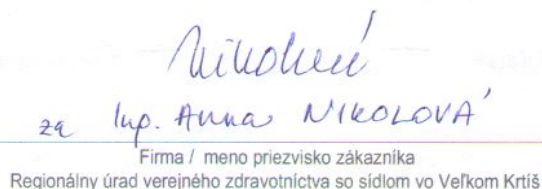 za Ing. Anna NIKOLOVÁ
Firma / meno priezvisko zákazníka
Regionálny úrad verejného zdravotníctva so sídlom vo Veľkom Krtíši